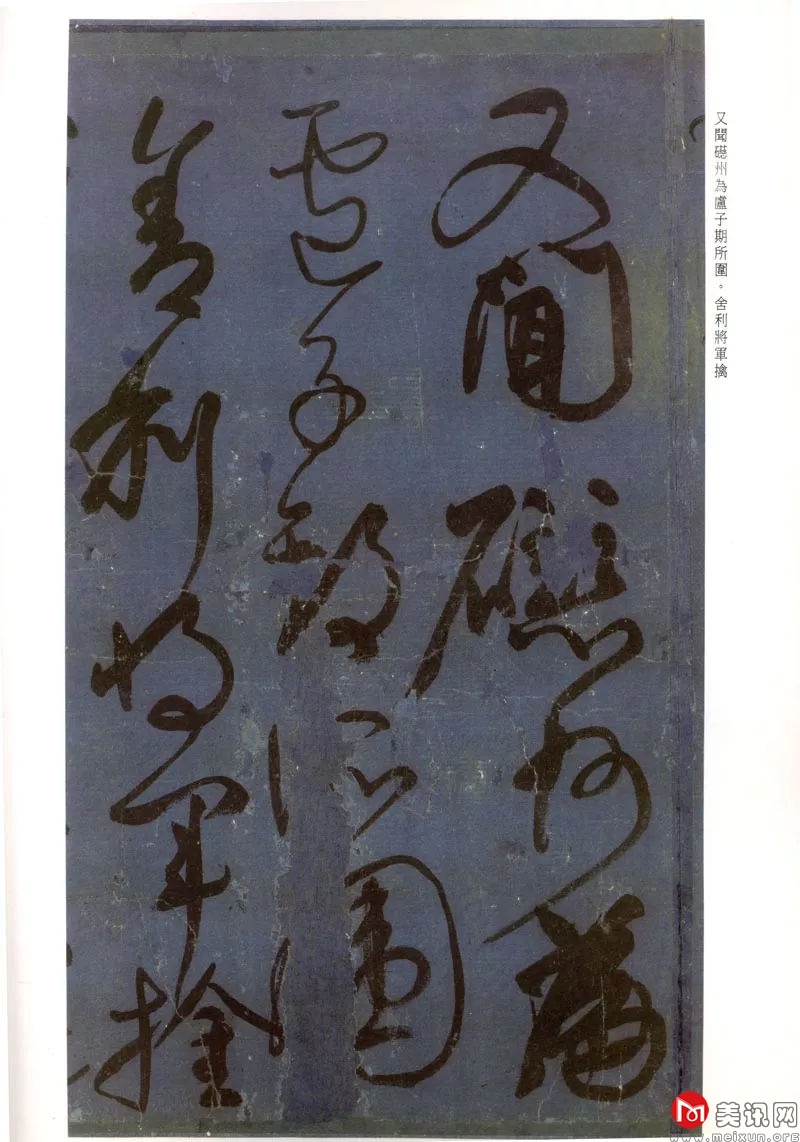 又聞礠州為
盧子期所圍
舍利將軍擒
又聞礠州為盧子期所圍。舍利將軍擒
美讯网
www.meixun.org